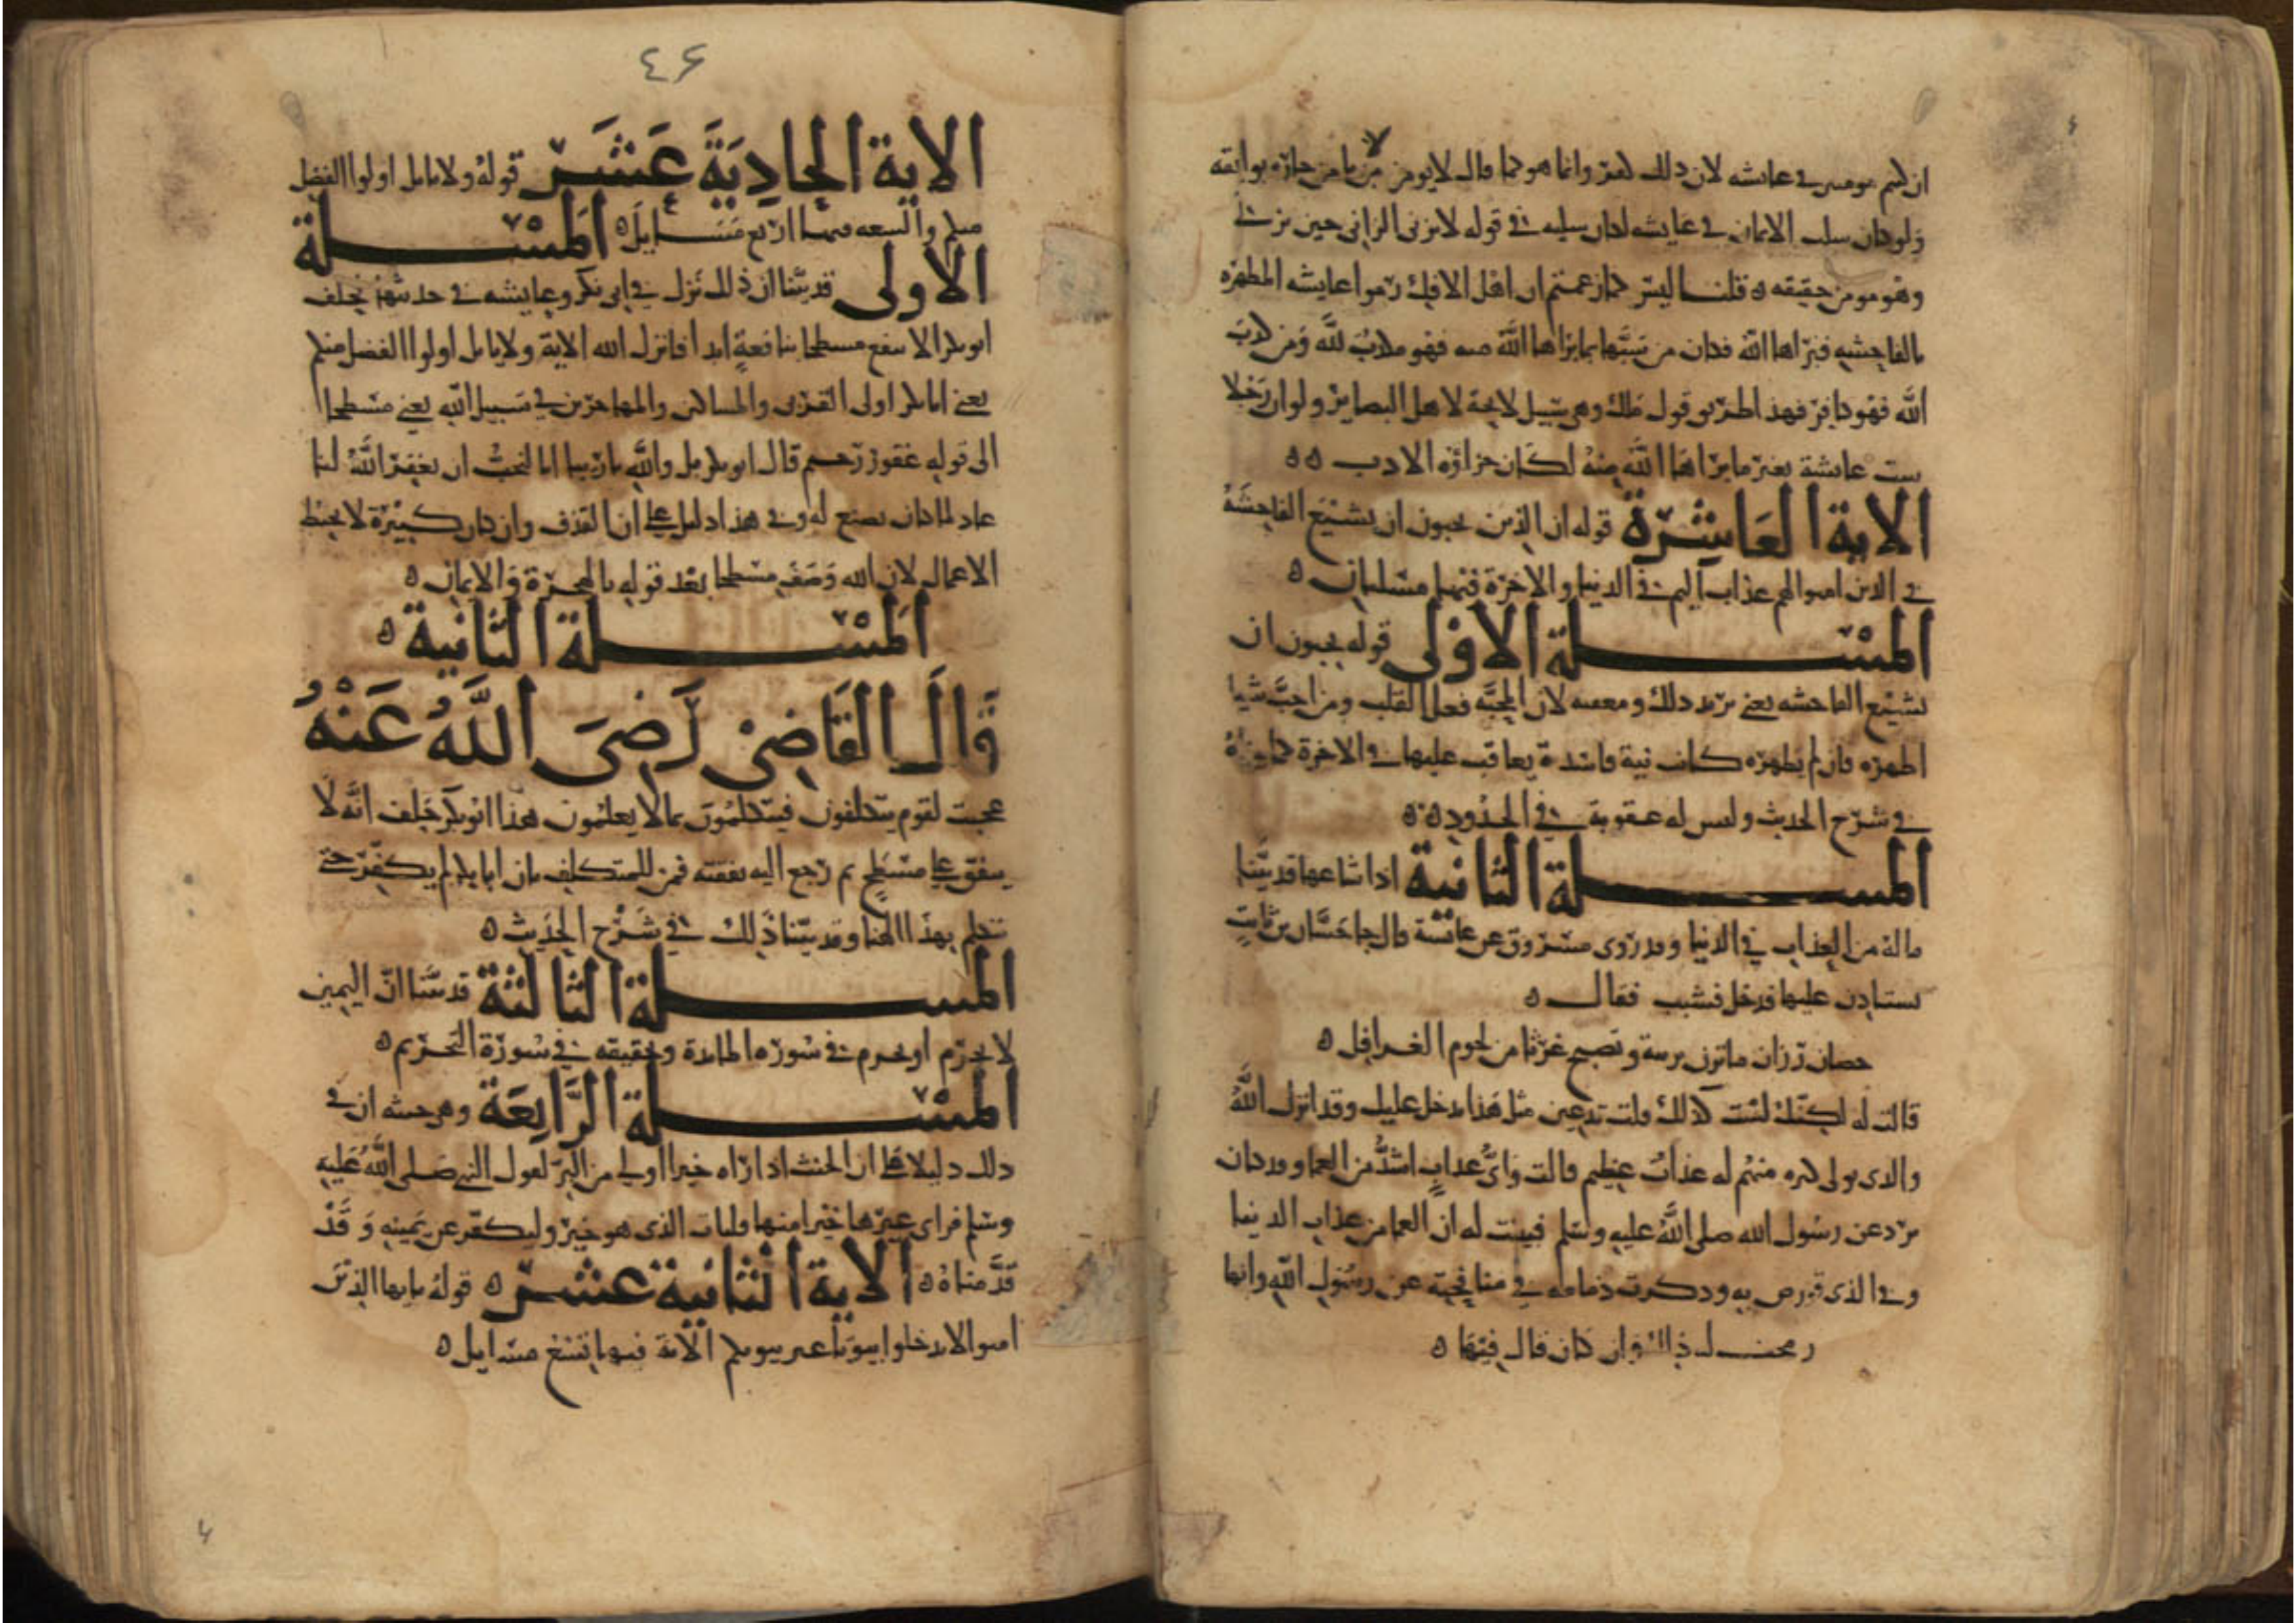 ان كنتم مومنين في عايشه لان ذلك كفر وانما هو كما قال لا يومن من لا يامن جاره بوايقه
ولو كان سلب الايمان في عايشه لكان سلبه في قوله لا يزنى الزاني حين يزني
وهو مومن حقيقه ه قلنا ليس كما زعمتم ان اهل الافك رموا عايشه المطهره
بالفاحشه فبراها الله فكان من سبها بما براها الله منه فهو مكذب لله ومن كذب
الله فهو كافر فهذا طريق قول ملك وهي سبيل لايحة لاهل البصاير ولو ان رجلا
سب عايشة بغير ما براها الله منه لكان جزاؤه الادب ه ه
الاية العاشرة قوله ان الذين يحبون ان تشيع الفاحشه
في الذين امنوا لهم عذاب اليم في الدنيا والاخرة فيها مسلتان ه
المسلة الاولى قوله يحبون ان
تشيع الفاحشه يعني يريد ذلك ويعتقده لان المحبة فعل القلب ومن احب شيا
اظهره فان لم يظهره كانت نية فاسدة يعاقب عليها في الاخرة كما بيناه
في شرح الحديث وليس له عقوبة في الحدود ه ه
المسلة الثانية اذا شاعها قد بينا
ماله من العذاب في الدنيا وقد روى مسروق عن عائشة قال جا حسان بن ثابت
يستاذن عليها فدخل فشبب فقال ه
حصان رزان ما تزن بريبة وتصبح غرثا من لحوم الغوافل ه
قالت له لكنك لست كذلك قلت تدعين مثل هذا يدخل عليك وقد انزل الله
والذي تولى كبره منهم له عذاب عظيم قالت واي عذاب اشد من العما وقد كان
يرد عن رسول الله صلى الله عليه وسلم فبينت له ان العما من عذاب الدنيا
وفي الذي قورص به وذكرت ذمامه في منافحته عن رسول الله وانها
ذلك وان كان قال فيها ه
٤٦
الاية الحادية عشر قوله ولا ياتل اولوا الفضل
منكم والسعه فيها اربع مسايل ه المسلة
الاولى قد بينا ان ذلك نزل في ابي بكر وعايشه في حديثهم فحلف
ابو بكر الا ينفع مسطحا بنافعة ابدا فانزل الله الاية ولا ياتل اولوا الفضل منكم
يعني ابا بكر اولى القربى والمساكين والمهاجرين في سبيل الله يعني مسطحا
الى قوله غفور رحيم قال ابو بكر بلى والله يا ربنا انا لنحب ان يغفر الله لنا
عاد لما كان يصنع له وفي هذا دليل على ان القذف وان كان كبيرة لا يحبط
الاعمال لان الله وصف مسطحا بعد قوله بالهجرة والايمان ه
المسلة الثانية ه
قال القاضي رضي الله عنه
عجبت لقوم يتكلفون فيتكلمون بما لا يعلمون هذا ابو بكر حلف انه لا
ينفق على مسطح ثم رجع اليه نفقته فمن للمتكلف بان ابا بكر لم يكفر حتى
تكلم بهذا الهنا وقد بينا ذلك في شرح الحديث ه
المسلة الثالثة قد بينا ان اليمين
لا تحرم او تحرم في سورة المايدة وحقيقه في سورة التحريم ه
المسلة الرابعة وهي حسنه ان في
ذلك دليلا على ان الحنث اذا راه خيرا اولى من البر لقول النبي صلى الله عليه
وسلم فراى غيرها خيرا منها فليات الذي هو خير وليكفر عن يمينه وقد
قدمناه ه الاية الثانية عشر ه قوله يا يها الذين
امنوا لا تدخلوا بيوتا غير بيوتكم الاية فيها تسع مسايل ه